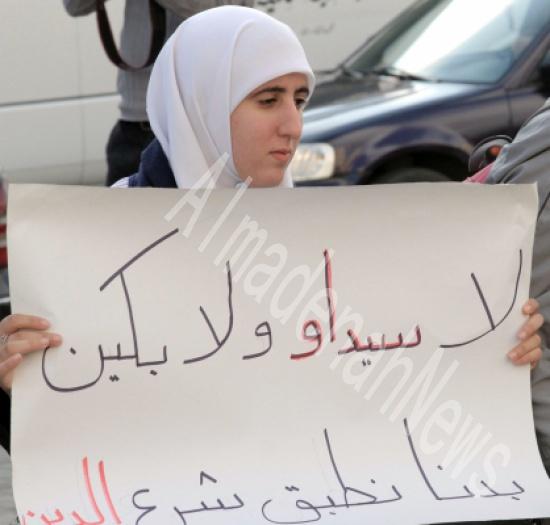 لا سيداو ولا بكين
بدنا نطبق شرع الدين
Almadenah News